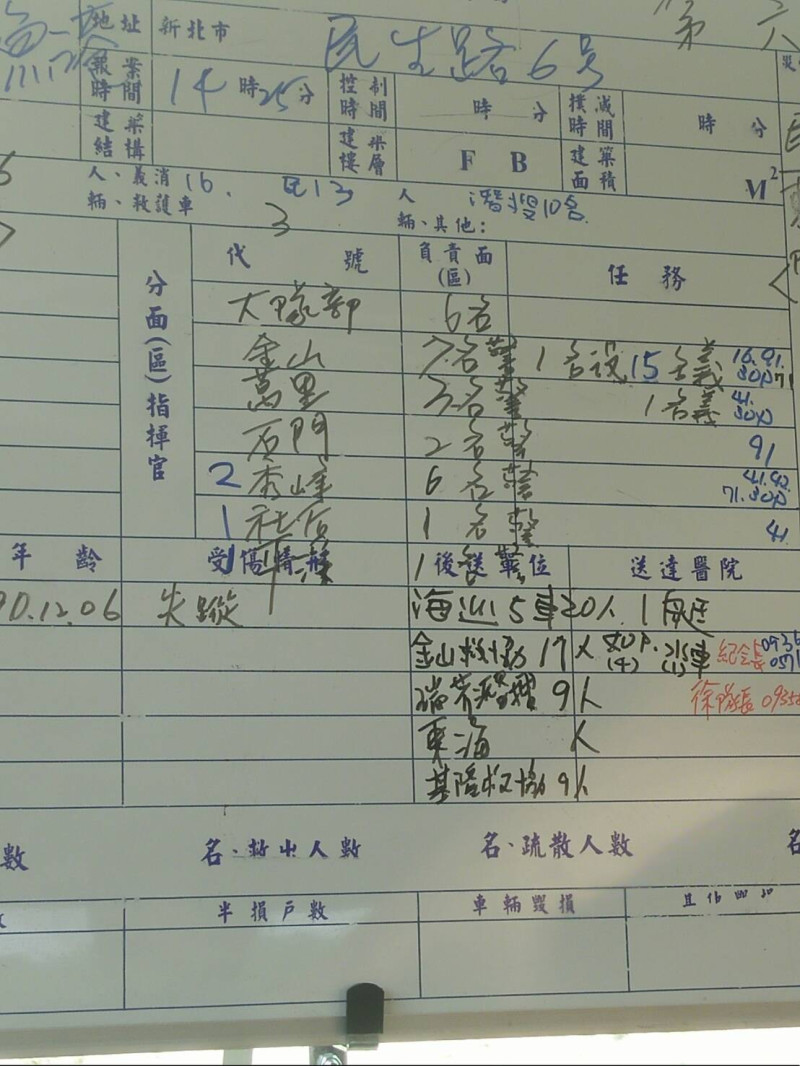 地址 新北市 民生路6号 第六
報案時間 14時25分 控制時間 時 分 撲滅時間 時 分
建築結構 建築樓層 F B 建築面積 M²
人、義消16. 民13 人 潛搜10名
輛、救護車 3 輛、其他:
分面(區)指揮官 代號 負責面(區) 任務
大隊部 6名
金山 7名警 1名役 15名義 16.91.
萬里 3名警 1名義 41.
石門 2名警 91
2 秀峰 6名警 41.92.
1 社后 1名警 41
年齡 受傷情形 後送單位 送達醫院
90.12.06 失蹤 海巡15車20人.1
金山救協 17人 (4) (1) 紀會長
9人 徐隊長
東海 人
基隆救協 9人
數 名、救出人數 名、疏散人數 名
半損戶數 車輛毀損